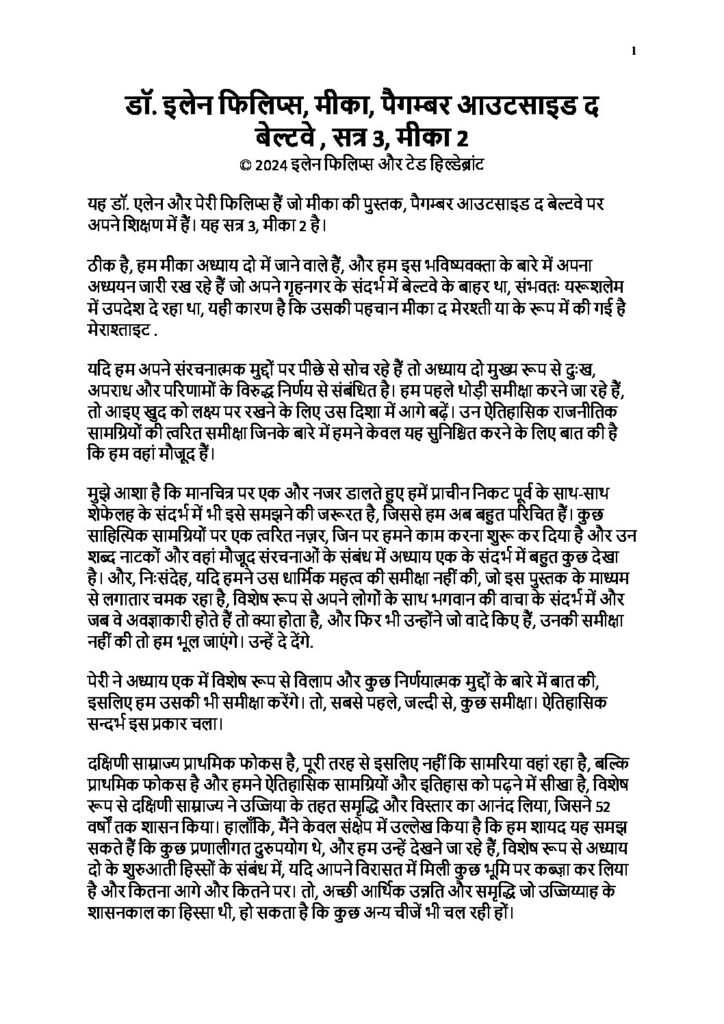 1
डॉ. इलेन फिलिप्स, मीका, पैगम्बर आउटसाइड द
बेल्टवे , सत्र 3, मीका 2
© 2024 इलेन फिलिप्स और टेड हिल्डेब्रांट
यह डॉ. एलेन और पेरी फिलिप्स हैं जो मीका की पुस्तक, पैगम्बर आउटसाइड द बेल्टवे पर
अपने शिक्षण में हैं। यह सत्र 3, मीका 2 है।
ठीक है, हम मीका अध्याय दो में जाने वाले हैं, और हम इस भविष्यवक्ता के बारे में अपना
अध्ययन जारी रख रहे हैं जो अपने गृहनगर के संदर्भ में बेल्टवे के बाहर था, संभवतः यरूशलेम
में उपदेश दे रहा था, यही कारण है कि उसकी पहचान मीका द मेरश्ती या के रूप में की गई है
मेराश्ताइट .
यदि हम अपने संरचनात्मक मुद्दों पर पीछे से सोच रहे हैं तो अध्याय दो मुख्य रूप से दुःख,
अपराध और परिणामों के विरुद्ध निर्णय से संबंधित है। हम पहले थोड़ी समीक्षा करने जा रहे हैं,
तो आइए खुद को लक्ष्य पर रखने के लिए उस दिशा में आगे बढ़ें। उन ऐतिहासिक राजनीतिक
सामग्रियों की त्वरित समीक्षा जिनके बारे में हमने केवल यह सुनिश्चित करने के लिए बात की है
कि हम वहां मौजूद हैं।
मुझे आशा है कि मानचित्र पर एक और नजर डालते हुए हमें प्राचीन निकट पूर्व के साथ-साथ
शेफेलह के संदर्भ में भी इसे समझने की जरूरत है, जिससे हम अब बहुत परिचित हैं। कुछ
साहित्यिक सामग्रियों पर एक त्वरित नज़र, जिन पर हमने काम करना शुरू कर दिया है और उन
शब्द नाटकों और वहां मौजूद संरचनाओं के संबंध में अध्याय एक के संदर्भ में बहुत कुछ देखा
है। और, निःसंदेह, यदि हमने उस धार्मिक महत्व की समीक्षा नहीं की, जो इस पुस्तक के माध्यम
से लगातार चमक रहा है, विशेष रूप से अपने लोगों के साथ भगवान की वाचा के संदर्भ में और
जब वे अवज्ञाकारी होते हैं तो क्या होता है, और फिर भी उन्होंने जो वादे किए हैं, उनकी समीक्षा
नहीं की तो हम भूल जाएंगे। उन्हें दे देंगे.
पेरी ने अध्याय एक में विशेष रूप से विलाप और कुछ निर्णयात्मक मुद्दों के बारे में बात की,
इसलिए हम उसकी भी समीक्षा करेंगे। तो, सबसे पहले, जल्दी से, कुछ समीक्षा। ऐतिहासिक
सन्दर्भ इस प्रकार चला।
दक्षिणी साम्राज्य प्राथमिक फोकस है, पूरी तरह से इसलिए नहीं कि सामरिया वहां रहा है, बल्कि
प्राथमिक फोकस है और हमने ऐतिहासिक सामग्रियों और इतिहास को पढ़ने में सीखा है, विशेष
रूप से दक्षिणी साम्राज्य ने उज्जिया के तहत समृद्धि और विस्तार का आनंद लिया, जिसने 52
वर्षों तक शासन किया। हालाँकि, मैंने केवल संक्षेप में उल्लेख किया है कि हम शायद यह समझ
सकते हैं कि कुछ प्रणालीगत दुरुपयोग थे, और हम उन्हें देखने जा रहे हैं, विशेष रूप से अध्याय
दो के शुरुआती हिस्सों के संबंध में, यदि आपने विरासत में मिली कुछ भूमि पर कब्ज़ा कर लिया
है और कितना आगे और कितने पर। तो, अच्छी आर्थिक उन्नति और समृद्धि जो उज्जिय्याह के
शासनकाल का हिस्सा थी, हो सकता है कि कुछ अन्य चीजें भी चल रही हों।